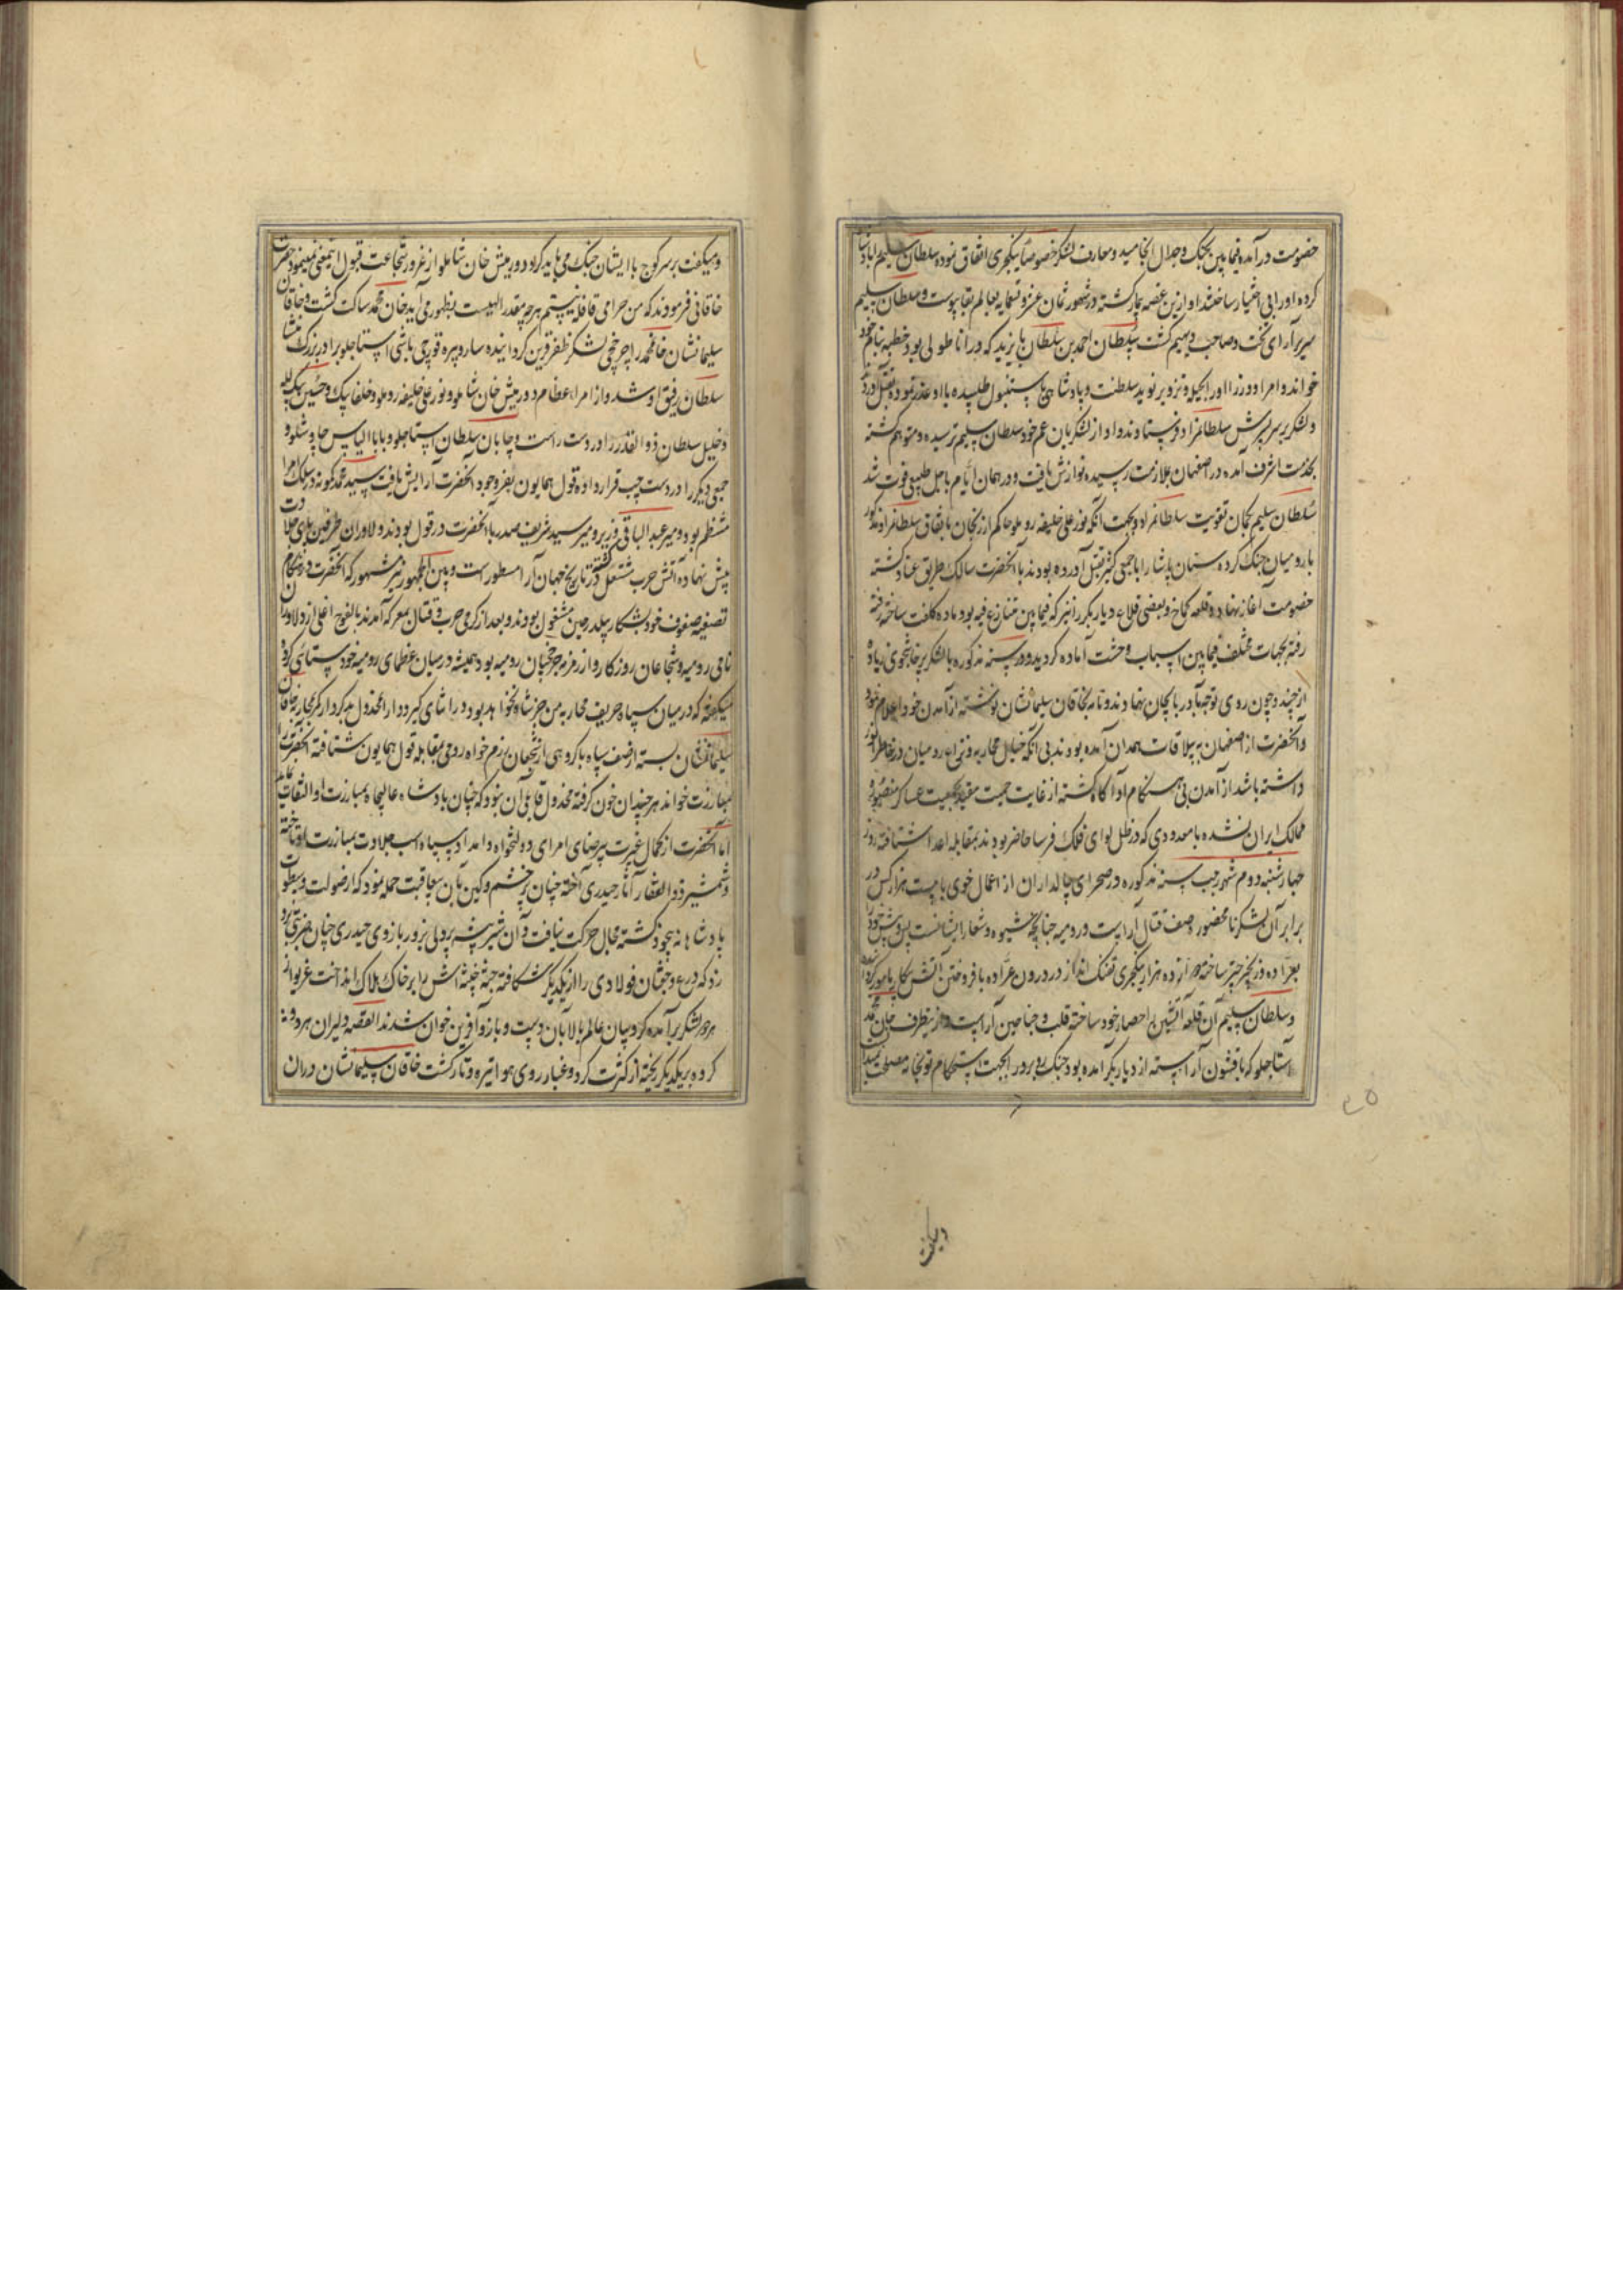 خصومت درآمده فیمابین بجنک وجدال انجامید ومعارف لشکر خصوصا ینکچری اتفاق نموده سلطان سلیم را پادشاه
کرده او را بی اختیار ساختند او ازین غصه بیمار کشته در شهور ثمان عشر و تسعمایه بعالم بقا پیوست و سلطان سلیم
سریر آرای تخت وصاحب دیهیم کشت سلطان احمد بن سلطان بایزید که در اناطولی بود خطبه بنام خود
خواند و امرا و وزرا او را بحیله و تزویر نوید سلطنت و پادشاهی باستنبول طلبیده با او غدر نموده بقتل آوردند
ولشکر بر سر پسرش سلطانمراد فرستادند و او از لشکریان عم خود سلطان سلیم ترسیده و متوهم کشته
بخدمت اشرف آمده در اصفهان بملازمت رسیده نوازش یافت و در همان ایام باجل طبیعی فوت شد
سلطان سلیم بکمان تقویت سلطانمراد و بجهت آنکه نورعلی خلیفه روملو حاکم ارزنجان باتفاق سلطانمراد مذکور
با رومیان جنک کرده سنان پاشا را با جمعی کثیر بقتل آورده بودند با آنحضرت سالک طریق عناد کشته
خصومت آغاز نهاده و قلعه کماخ و بعضی قلاع دیاربکر را نیز که فیمابین متنازع فیه بود ماده کلفت ساخته رفته
رفته بجهات مختلف فیمابین اسباب وحشت آماده کردید و در سنه مذکوره با لشکر پرخاشجوی زیاده
از چند و چون روی توجه بآذربایجان نهادند و نامه بخاقان سلیمانشان نوشته از آمدن خود اعلام نمود
و آنحضرت از اصفهان به ییلاقات همدان آمده بودند بی آنکه خیال محاربه و نزاع رومیان در خاطر انور
داشته باشد از آمدن بی هنکام او آکاه کشته از غایت حمیت مقید بجمعیت عساکر منصوره
ممالک ایران نشده با معدودی که در ظل لوای فلک فرسا حاضر بودند بمقابله اعدا شتافته روز
چهارشنبه دوم شهر رجب سنه مذکوره در صحرای چالداران از اعمال خوی با بیست هزار کس در
برابر آن لشکر نامحصور صف قتال آراست و رومیه چنانچه شیوه و شعار ایشانست پس و پیش خود را
بعراده و زنجیر حبر ساخته دوازده هزار ینکچری تفنک انداز در درون عراده بافروختن آتش پیکار مامور کرد
وسلطان سلیم آن قلعه آتشین را حصار خود ساخته قلب و جناحین آراست و ازینطرف خان محمد
استاجلو که با قشون آراسته از دیاربکر آمده بود جنک روبرو را بجهت استحکام توپخانه مصلحت ندید
ومیکفت بر سر کوچ با ایشان جنک می باید کرد دورمیش خان شاملو از غرور شجاعت قبول اینمعنی نمینمود حضرت
خاقانی فرمودند که من حرامی قافله نیستم هر چه مقدر الهیست بظهور می آید خان محمد ساکت کشت و خاقان
سلیمانشان خانمحمد را چرخچی لشکر ظفر قرین کردانیده ساروپیره قورچی باشی استاجلو برادر بزرک منشا
سلطان رفیق او شد و از امراء عظام دورمیش خان شاملو و نورعلی خلیفه روملو و خلفا بیک و حسین بیک لله
و خلیل سلطان ذوالقدر را در دست راست و چایان سلطان استاجلو و بابا الیاس چاوشلو و
جمعی دیکر را در دست چپ قرار داده قول همایون بفر وجود آنحضرت آرایش یافت سید محمد کمونه در سلک امرا
منتظم بود و میر عبدالباقی وزیر و میر سید شریف صدر با آنحضرت در قول بودند و دلاوران طرفین پای جلادت
پیش نهاده آتش حرب مشتعل کشته در تاریخ جهان آرا مسطور است و بین الجمهور نیز مشهور که آنحضرت در هنکام
تصفیه صفوف خود بشکار بیلدرچین مشغول بودند و بعد از کرمی حرب و قتال بمعرکه آمدند بالفوج اغلی از دلاوران
نامی رومیه و شجاعان روزکار و از زمره چرخچیان رومیه بود و همیشه در میان عظمای رومیه خودستائی کرده
میکفته که در میان سپاه حریف محاربه من جز شاه نخواهد بود در اثنای کیر و دار آن مخذول بدکردار که بمحاربه خاقان
سلیمانشان بسته از صف سپاه با کروهی از شجعان رزم خواه رومی بمقابله قول همایون شتافته آنحضرت را
بمبارزت خواند هر چند آن خون کرفته مخذول قابل آن نبود که چنان پادشاه عالیجاه بمبارزت او التفات نماید
اما آنحضرت از کمال غیرت بیرضای امرای دولتخواه و امداد سپاه اسب جلادت بمبارزت او تاخته
وشمشیر ذوالفقار آثار حیدری آخته چنان پرخشم و کین بآن بدعاقبت حمله نمود که از صولت و سطوت
پادشاهانه بیخود کشته مجال حرکت نیافت و آن شیر بیشه پردلی بزور بازوی حیدری چنان ضربتی برو
زد که درع و خفتان فولادی را از یکدیکر شکافته جثه خبیثه اش را بر خاک هلاک انداخت غریو از
هر دو لشکر برآمده کروبیان عالم بالا بآن دست و بازو آفرین خوان شدند القصه دلیران هر دو
کروه بر یکدیکر ریخته از کثرت کرد و غبار روی هوا تیره و تار کشت خاقان سلیمانشان دران
دریافت